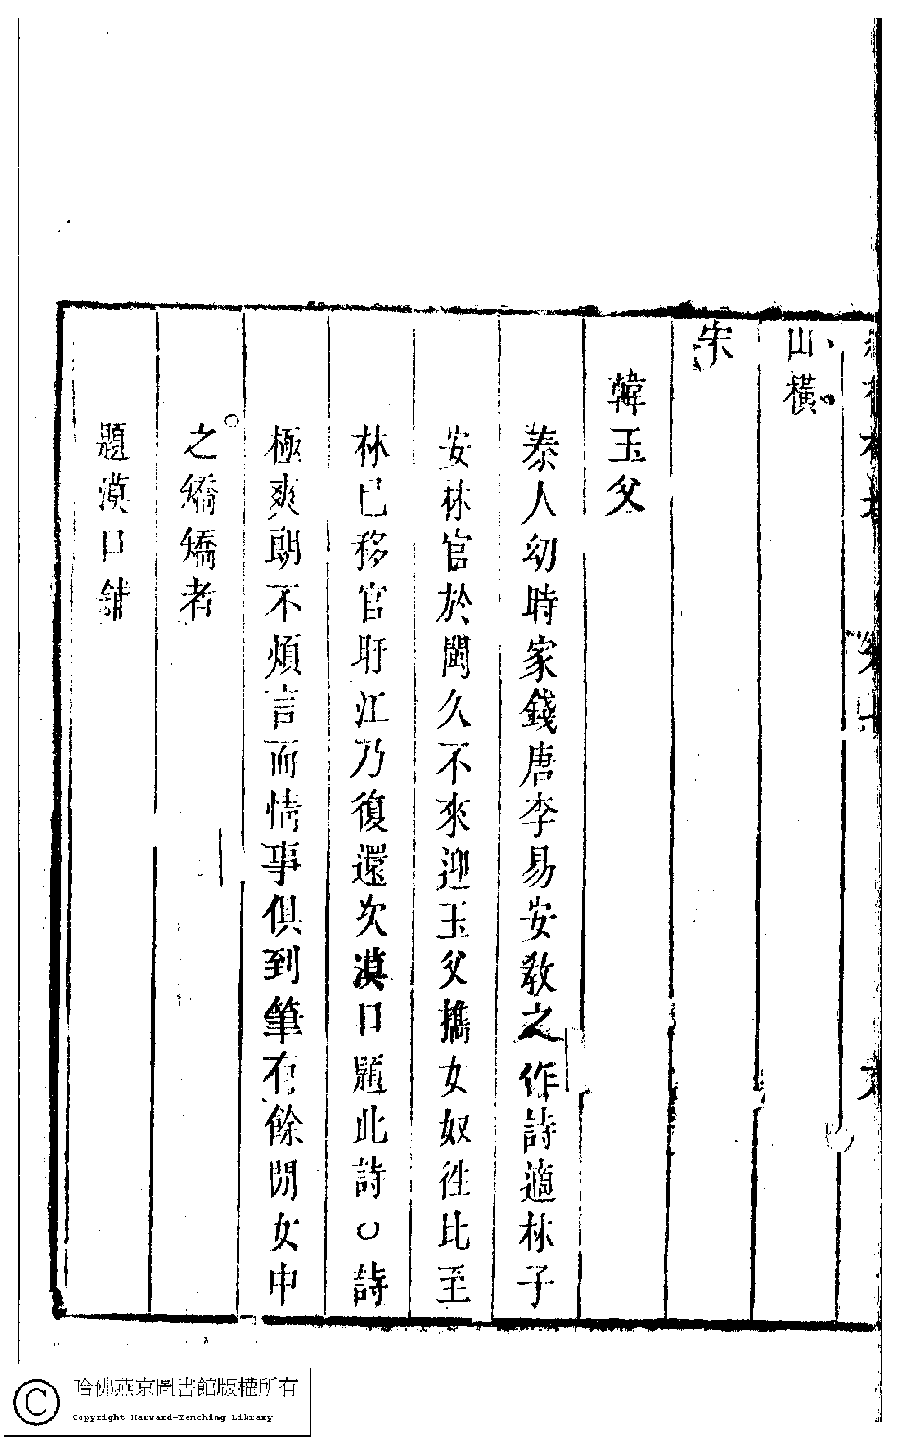 山橫
宋
韓玉父
秦人幼時家錢唐李易安教之作詩適林子
安林官於閩久不來迎玉父攜女奴往比至
林已移官盱江乃復還次漠口題此詩○詩
極爽朗不煩言而情事俱到筆有餘閒女中
之矯矯者
題漠口舖
哈佛燕京圖書館版權所有
Copyright Harvard-Yenching Library